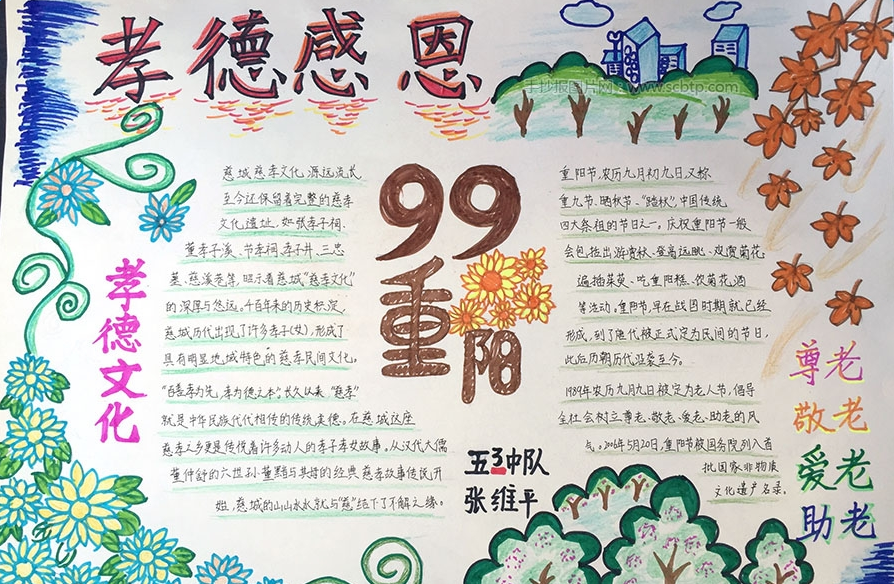 孝德感恩
手抄报图片网：www.scbtp.com
慈城慈孝文化,源远流长
至今还保留着完整的慈孝
文化遗址,如张孝子祠、
董孝子溪、节孝祠、孝子井、三忠
墓、慈溪巷等,昭示着慈城“慈孝文化”
的深厚与悠远。千百年来的历史积淀,
慈城历代出现了许多孝子(女),形成了
具有明显地域特色的慈孝民间文化。
“百善孝为先,孝为德之本”,长久以来“慈孝”
就是中华民族代代相传的传统美德。在慈城这座
慈孝之乡更是传悦着许多动人的孝子孝女故事。从汉代大儒
董仲舒的六世孙董黯与其母的经典慈孝故事传说开
始,慈城的山山水水就与“慈”结下了不解之缘。
孝德文化
99
重阳
五3中队
张维平
重阳节,农历九月初九日,又称
重九节、晒秋节、“踏秋”,中国传统
四大祭祖的节日之一。庆祝重阳节一般
会包括出游赏秋、登高远眺、观赏菊花、
遍插茱萸、吃重阳糕、饮菊花酒
等活动。重阳节,早在战国时期就已经
形成,到了唐代被正式定为民间的节日,
此后历朝历代沿袭至今。
1989年农历九月九日被定为老人节,倡导
全社会树立尊老、敬老、爱老、助老的风
气。2006年5月20日,重阳节被国务院列入首
批国家非物质
文化遗产名录。
尊老
敬老
爱老
助老